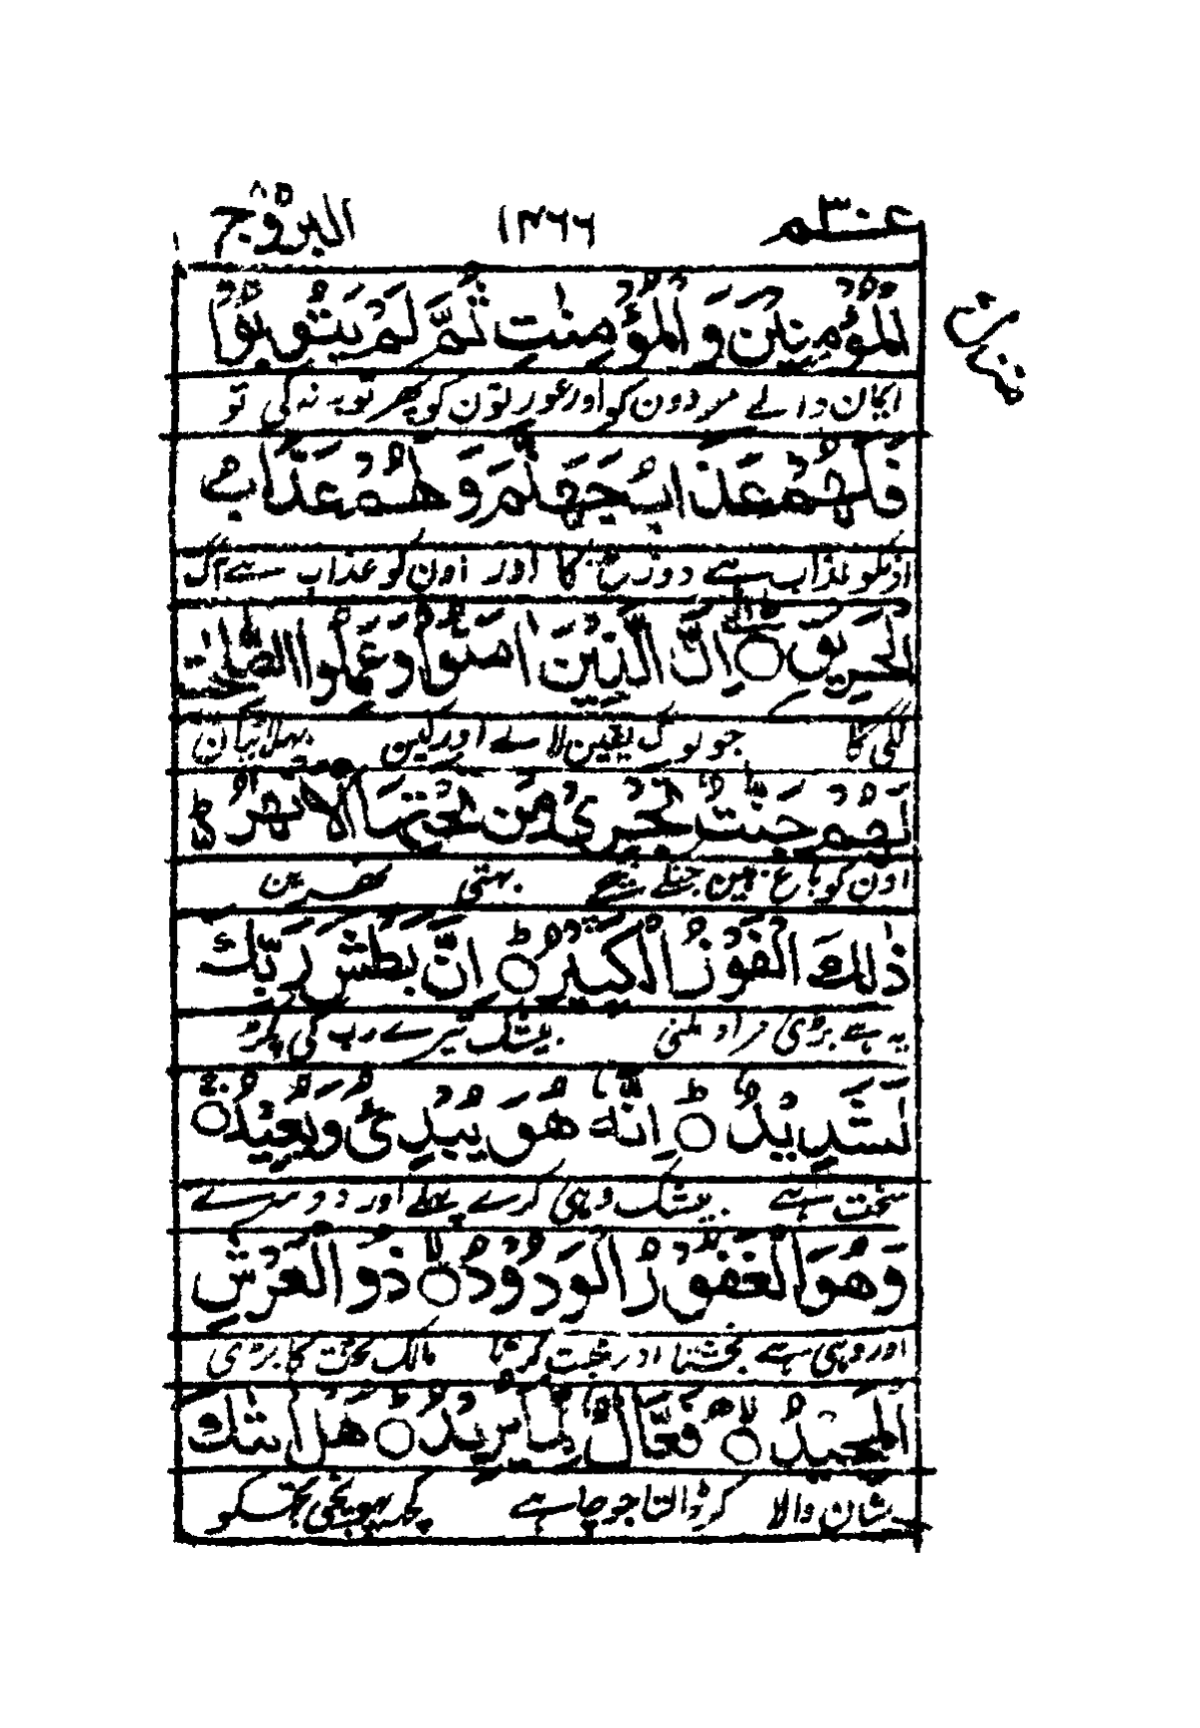 عم ٣٠ ١٢٦٦ البروج ٨٥
الْمُؤْمِنِيْنَ وَ الْمُؤْمِنٰتِ ثُمَّ لَمْ يَتُوْبُوْا
ایمان والے مردون کو اور عورتون کو پھر توبہ نہ کی تو
فَلَهُمْ عَذَابُ جَهَنَّمَ وَ لَهُمْ عَذَابُ
اونکو عذاب ہے دوزخ کا اور اون کو عذاب ہے آگ
الْحَرِيْقِ ○ اِنَّ الَّذِيْنَ اٰمَنُوْا وَ عَمِلُوا الصّٰلِحٰتِ
لگی کا جو لوگ یقین لائے اور کین بھلائیان
لَهُمْ جَنّٰتٌ تَجْرِيْ مِنْ تَحْتِهَا الْاَنْهٰرُ ط
اون کو باغ ہین جنکے نیچے بہتی نھرین
ذٰلِكَ الْفَوْزُ الْكَبِيْرُ ○ اِنَّ بَطْشَ رَبِّكَ
یہ ہے بڑی مراد ملنی بیشک تیرے رب کی پکڑ
لَشَدِيْدٌ ○ اِنَّهٗ هُوَ يُبْدِئُ وَيُعِيْدُ ○
سخت ہے بیشک وہی کرے پہلے اور دوسرے
وَهُوَ الْغَفُوْرُ الْوَدُوْدُ ○ ذُو الْعَرْشِ
اور وہی ہے بخشتا اور محبت کرتا مالک تخت کا بڑی
الْمَجِيْدُ ○ فَعَّالٌ لِّمَا يُرِيْدُ ○ هَلْ اَتٰىكَ
شان والا کر ڈالتا جو چاہے کچھ پہونچی تجھکو